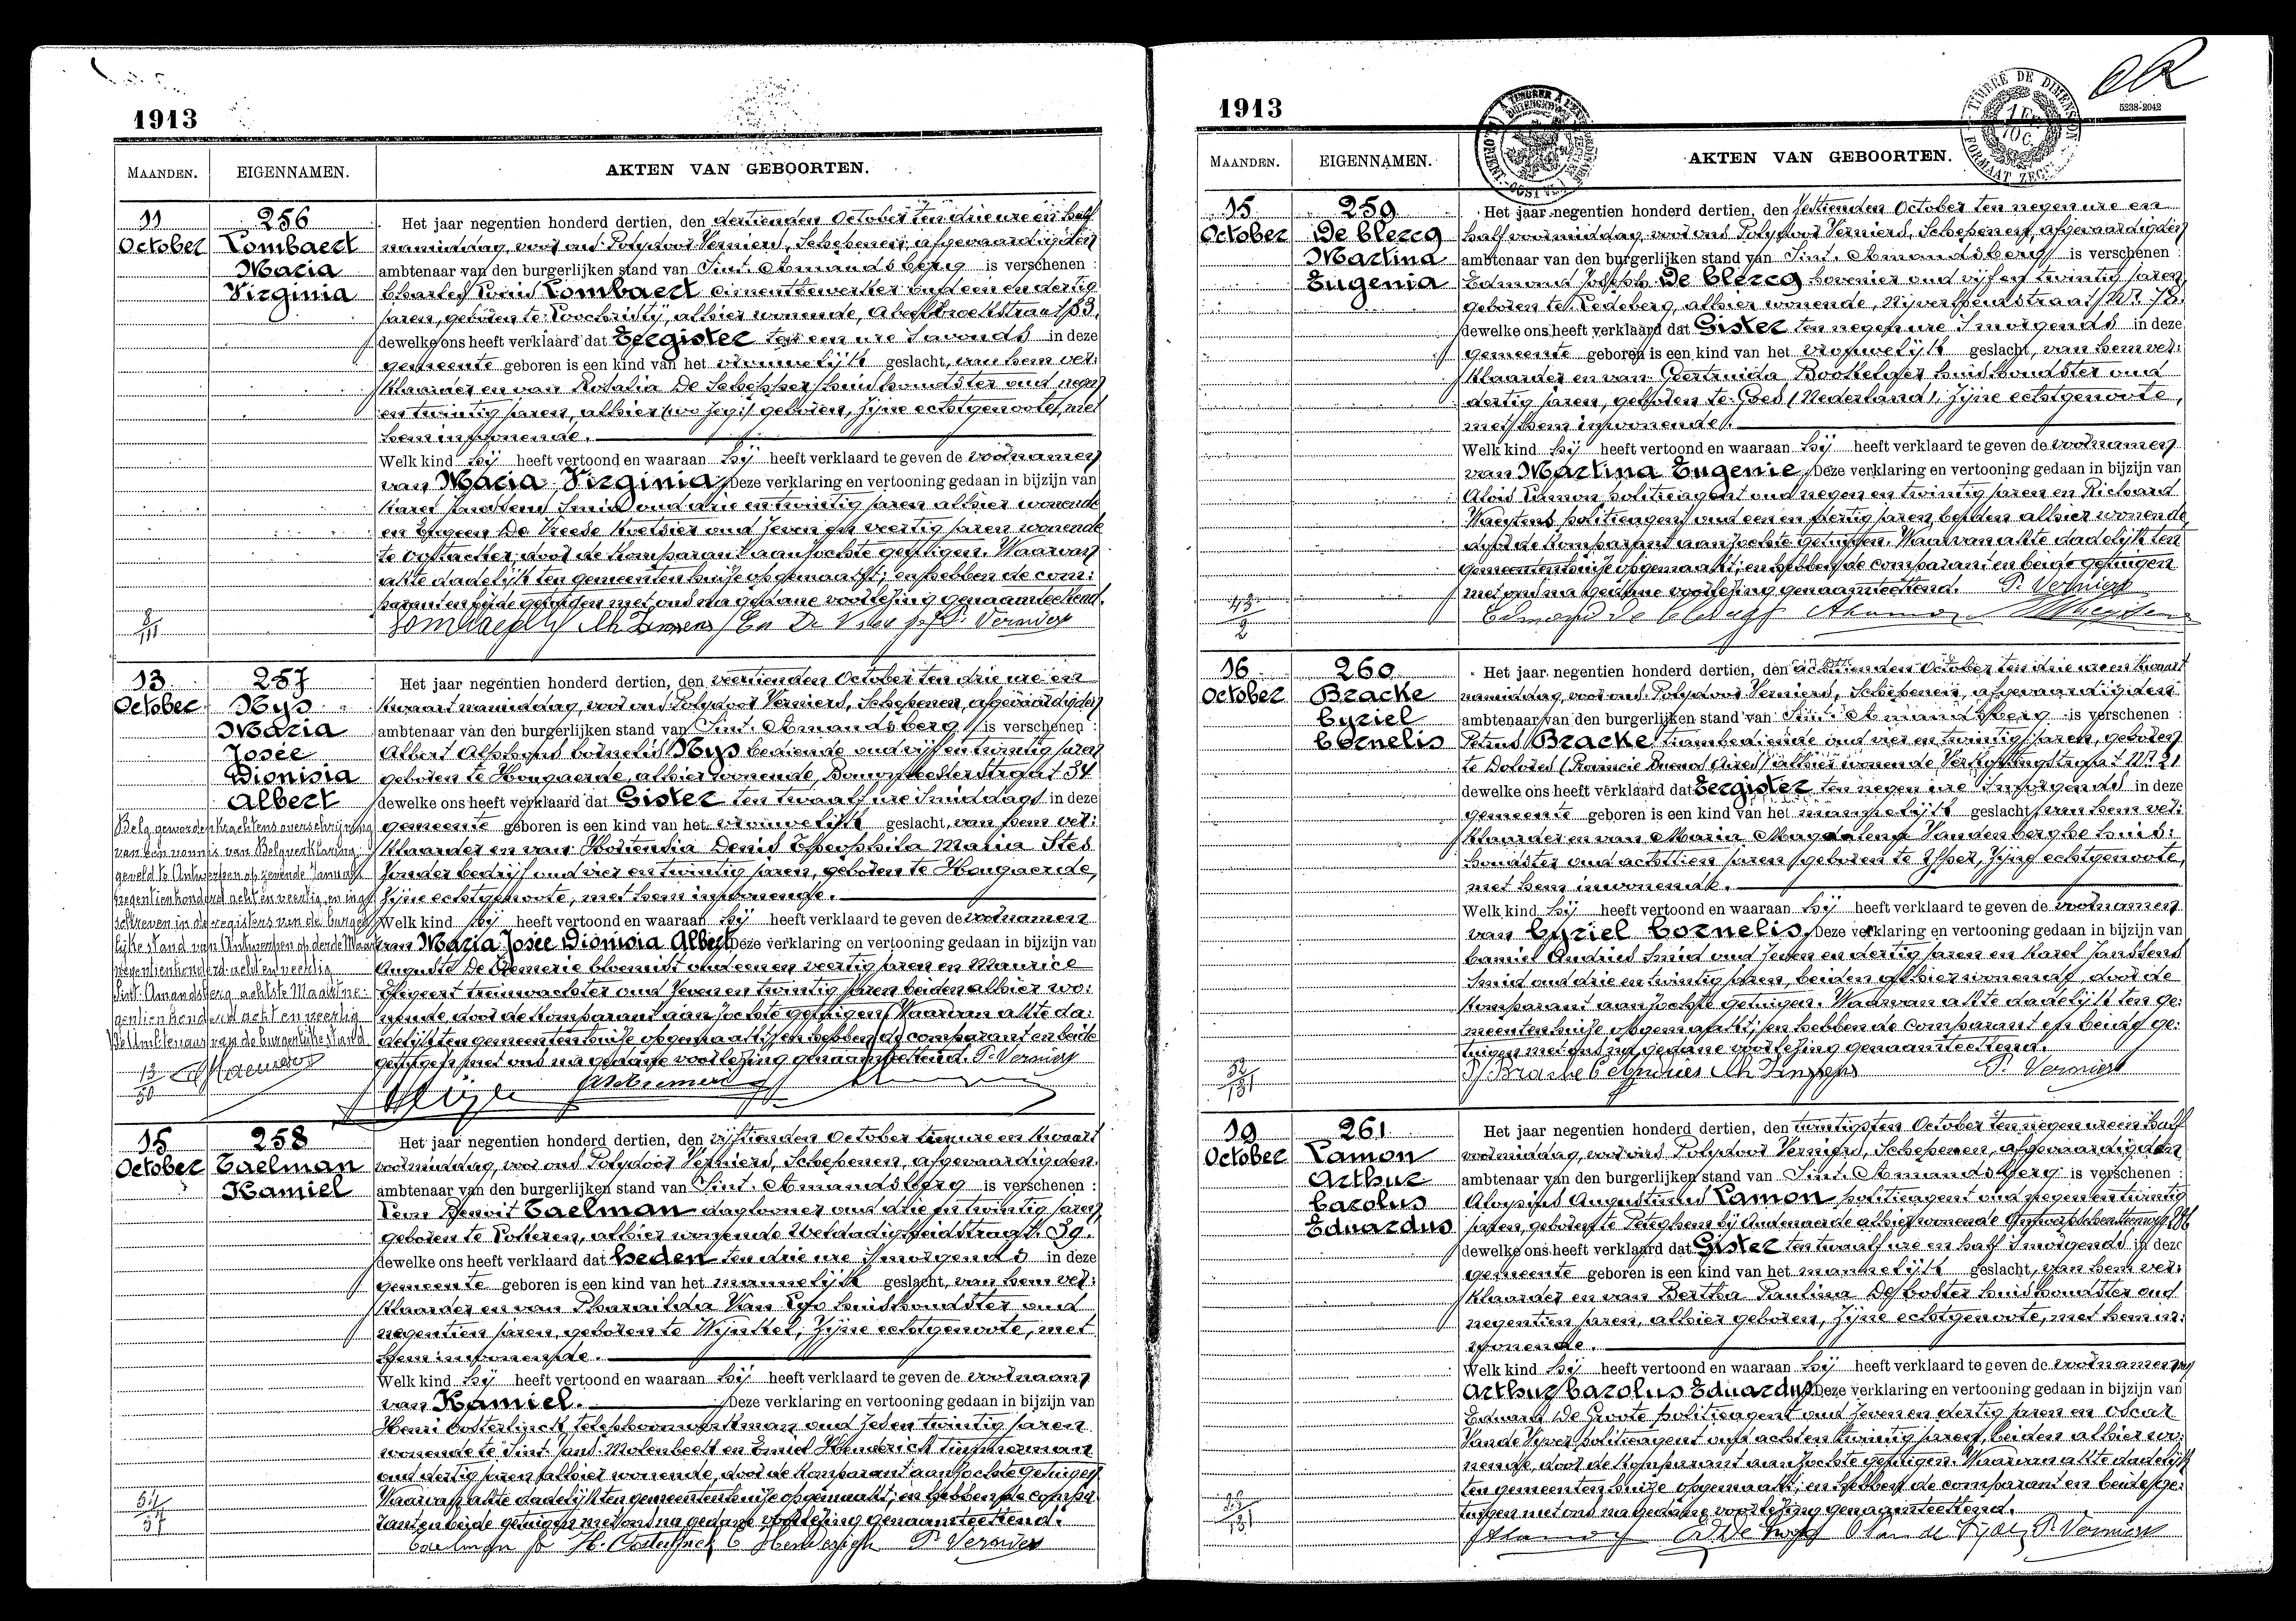 1913
MAANDEN. EIGENNAMEN. AKTEN VAN GEBOORTEN.
11
October
256
Lombaert
Maria
Virginia
Het jaar negentien honderd dertien, den dertienden October ten drie ure en half
namiddag, voor ons Polydoor Verniers, Schepenen, afgevaardigden
ambtenaar van den burgerlijken stand van Sint. Amandsberg is verschenen :
Charles Louis Lombaert cimentbewerker oud een en dertig
jaren, geboren te Loochristy, alhier wonende, 83.
dewelke ons heeft verklaard dat Eergister ten een ure s'avonds in deze
gemeente geboren is een kind van het vrouwelijk geslacht, van hem ver:
klaarder en van Rosalia De Schepper huishoudster oud negen
en twintig jaren, alhier geboren, zijne echtgenoote, met
hem inwonende.
Welk kind hij heeft vertoond en waaraan hij heeft verklaard te geven de voornamen
van Maria Virginia Deze verklaring en vertooning gedaan in bijzijn van
Karel Janssens Smid oud drie en twintig jaren alhier wonende
en Eugeen De Vreese Koetsier oud zeven en veertig jaren wonende
te Oostacker door de komparant aanzochte getuigen. Waarvan
akte dadelijk ten gemeentenhuize opgemaakt; en hebben de com:
parant en beide getuigen met ons na gedane voorlezing genaamteekend.
8/111
P. Verniers
13
October
257
Nys
Maria
Josée
Dionisia
Albert
Het jaar negentien honderd dertien, den veertienden October ten drie ure en
kwaart namiddag, voor ons Polydoor Verniers, Schepenen, afgevaardigden
ambtenaar van den burgerlijken stand van Sint. Amandsberg is verschenen :
Albert Alphons Cornelis Nys bediende oud vijf en twintig jaren
geboren te Hougaerde, alhier wonende, 34
dewelke ons heeft verklaard dat Gister ten twaalf ure s'middags in deze
gemeente geboren is een kind van het vrouwelijk geslacht, van hem ver:
klaarder en van Hortensia Denis Theophila Maria Stes
zonder bedrijf oud vier en twintig jaren, geboren te Hougaerde,
zijne echtgenoote, met hem inwonende.
Welk kind hij heeft vertoond en waaraan hij heeft verklaard te geven de voornamen
van Maria Josée Dionisia Albert Deze verklaring en vertooning gedaan in bijzijn van
Auguste bloemist oud een en veertig jaren en Maurice
treinwachter oud zeven en twintig jaren beiden alhier wo:
nende door de komparant aanzochte getuigen. Waarvan akte da:
delijk ten gemeentenhuize opgemaakt; en hebben de comparant en beide
getuigen met ons na gedane voorlezing genaamteekend. P. Verniers
Belg geworden krachtens overschrijving
van een vonnis van Belgverklaring
geveld te Antwerpen op Januari
negentienhonderd acht en veertig en inge
schreven in de registers van de burger
lijke stand van Antwerpen op derde Maart
negentienhonderd acht en veertig
Sint-Amandsberg achtste Maart ne:
gentienhonderd acht en veertig
De Ambtenaar van de burgerlijke stand
13/50
15
October
258
Taelman
Kamiel
Het jaar negentien honderd dertien, den vijftienden October tien ure en kwaart
voormiddag, voor ons Polydoor Verniers, Schepenen, afgevaardigden
ambtenaar van den burgerlijken stand van Sint. Amandsberg is verschenen :
Leon Benoit Taelman daglooner oud drie en twintig jaren
geboren te Lotteren, alhier wonende Weldadigheidstraat 39.
dewelke ons heeft verklaard dat heden ten drie ure s'morgends in deze
gemeente geboren is een kind van het mannelijk geslacht, van hem ver:
klaarder en van Pharailda Van huishoudster oud
negentien jaren, geboren te Wynkel, zijne echtgenoote, met
hem inwonende.
Welk kind hij heeft vertoond en waaraan hij heeft verklaard te geven de voornaam
van Kamiel. Deze verklaring en vertooning gedaan in bijzijn van
Henri Oosterlinck telephoonwerkman oud twintig jaren
wonende te Sint Jans Molenbeek en Emiel Henderick timmerman
oud dertig jaren alhier wonende, door de komparant aanzochte getuigen
Waarvan akte dadelijk ten gemeentenhuize opgemaakt; en hebben de compa
rant en beide getuigen met ons na gedane voorlezing genaamteekend.
Taelman H. Oosterlinck P. Verniers
1913
5238-2042
TIMBRE DE DIMENSION
1 Fr.
10 C.
MAANDEN. EIGENNAMEN. AKTEN VAN GEBOORTEN.
15
October
259
De Clercq
Martina
Eugenia
Het jaar negentien honderd dertien, den October ten negen ure en
half voormiddag, voor ons Polydoor Verniers, Schepenen, afgevaardigden
ambtenaar van den burgerlijken stand van Sint. Amandsberg is verschenen :
Edmond Joseph De Clercq hovenier oud vijf en twintig jaren,
geboren te Ledeberg, alhier wonende, Nijverheidstraat Nr 78.
dewelke ons heeft verklaard dat Gister ten negen ure s'morgends in deze
gemeente geboren is een kind van het vrouwelijk geslacht, van hem ver:
klaarder en van Geertruida huishoudster oud
dertig jaren, geboren te Goes (Nederland), zijne echtgenoote,
met hem inwonende.
Welk kind hij heeft vertoond en waaraan hij heeft verklaard te geven de voornamen
van Martina Eugenie. Deze verklaring en vertooning gedaan in bijzijn van
Aloïs Lamon politieagent oud negen en twintig jaren en Richard
politieagent oud een en jaren, beiden alhier wonende
door de komparant aanzochte getuigen. Waarvan akte dadelijk ten
gemeentenhuize opgemaakt; en hebben de comparant en beide getuigen
met ons na gedane voorlezing genaamteekend. P. Verniers
43/2
16
October
260
Bracke
Cyriel
Cornelis
Het jaar negentien honderd dertien, den achttienden October ten drie ure en kwaart
namiddag, voor ons Polydoor Verniers, Schepenen, afgevaardigden
ambtenaar van den burgerlijken stand van Sint. Amandsberg is verschenen :
Petrus Bracke trambediende oud vier en twintig jaren, geboren
te Dolores (Provincie Buenos Aires) alhier wonende Nr 21
dewelke ons heeft verklaard dat Eergister ten negen ure s'morgends in deze
gemeente geboren is een kind van het mannelijk geslacht, van hem ver:
klaarder en van Maria Magdalena Vandenberghe huis:
houdster oud achttien jaren geboren te Yper, zijne echtgenoote,
met hem inwonende.
Welk kind hij heeft vertoond en waaraan hij heeft verklaard te geven de voornamen
van Cyriel Cornelis. Deze verklaring en vertooning gedaan in bijzijn van
Camiel Andries Smid oud zeven en dertig jaren en Karel Janssens
Smid oud drie en twintig jaren, beiden alhier wonende, door de
komparant aanzochte getuigen. Waarvan akte dadelijk ten ge:
meentenhuize opgemaakt; en hebben de comparant en beide ge:
tuigen met ons na gedane voorlezing genaamteekend.
P. Bracke C. Andries P. Verniers
19
October
261
Lamon
Arthur
Carolus
Eduardus
Het jaar negentien honderd dertien, den twintigsten October ten negen ure en half
voormiddag, voor ons Polydoor Verniers, Schepenen, afgevaardigden
ambtenaar van den burgerlijken stand van Sint. Amandsberg is verschenen :
Aloysius Augustinus Lamon politieagent oud negen en twintig
jaren, geboren te Peteghem bij Audenaerde alhier wonende
dewelke ons heeft verklaard dat Gister ten twaalf ure en half s'morgends in deze
gemeente geboren is een kind van het mannelijk geslacht, van hem ver:
klaarder en van Bertha Paulina De Coster huishoudster oud
negentien jaren, alhier geboren, zijne echtgenoote, met hem in:
wonende.
Welk kind hij heeft vertoond en waaraan hij heeft verklaard te geven de voornamen van
Arthur Carolus Eduardus Deze verklaring en vertooning gedaan in bijzijn van
Eduard De Groote politieagent oud zeven en dertig jaren en Oscar
Van de Vyver politieagent oud acht en twintig jaren, beiden alhier wo:
nende, door de komparant aanzochte getuigen. Waarvan akte dadelijk
ten gemeentenhuize opgemaakt; en hebben de comparant en beide ge:
tuigen met ons na gedane voorlezing genaamteekend.
P. Verniers